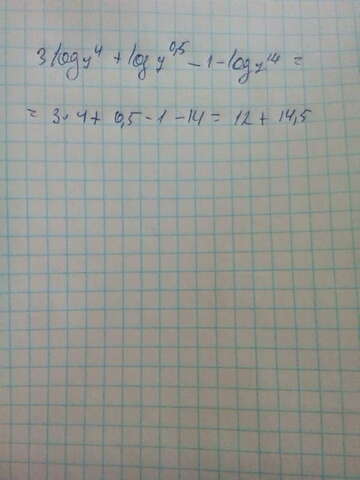 3 log y⁴ + log y^0,5 - 1 - log y¹⁴ =
= 3 · 4 + 0,5 - 1 - 14 = 12 + 14,5